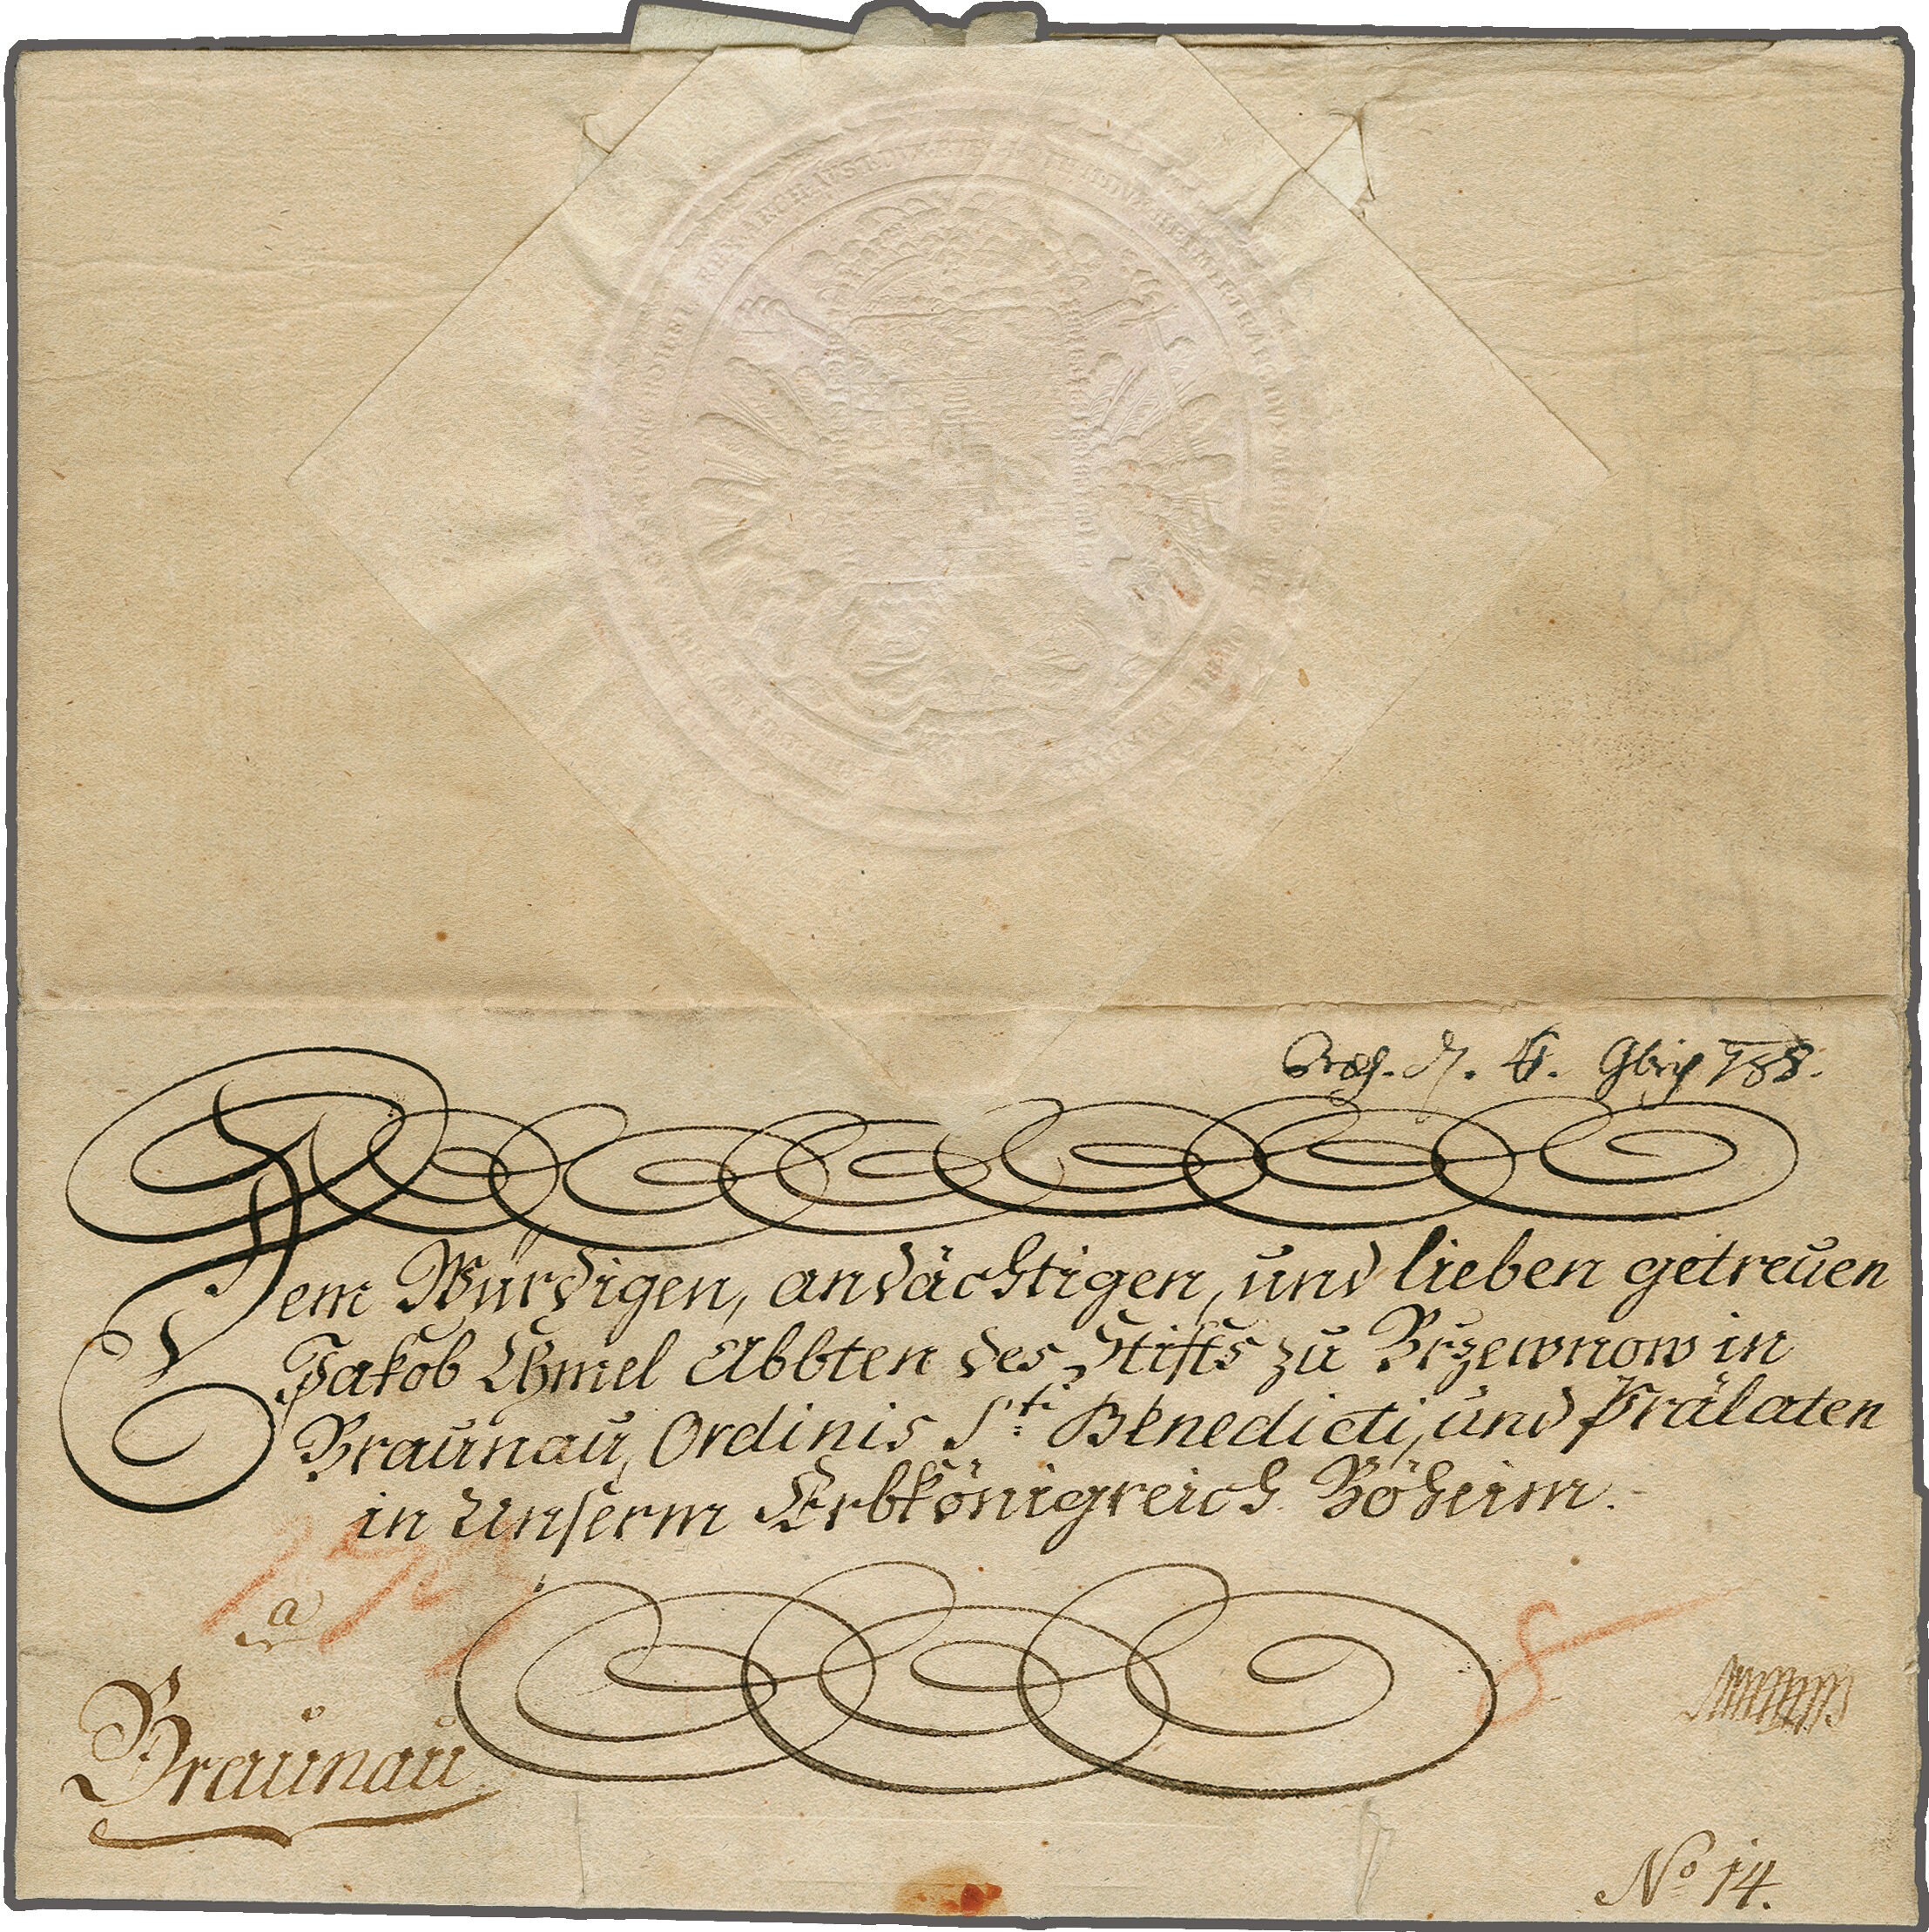 d. 6. 9bris 788.
Dem Würdigen, andächtigen, und lieben getreuen
Jakob Chmel Abbten des Stifts zu Brzewnow in
Braunau, Ordinis Sti Benedicti, und Prälaten
in Unserm Erbkönigreich Böheim.
a
8
Braunau
No 14.